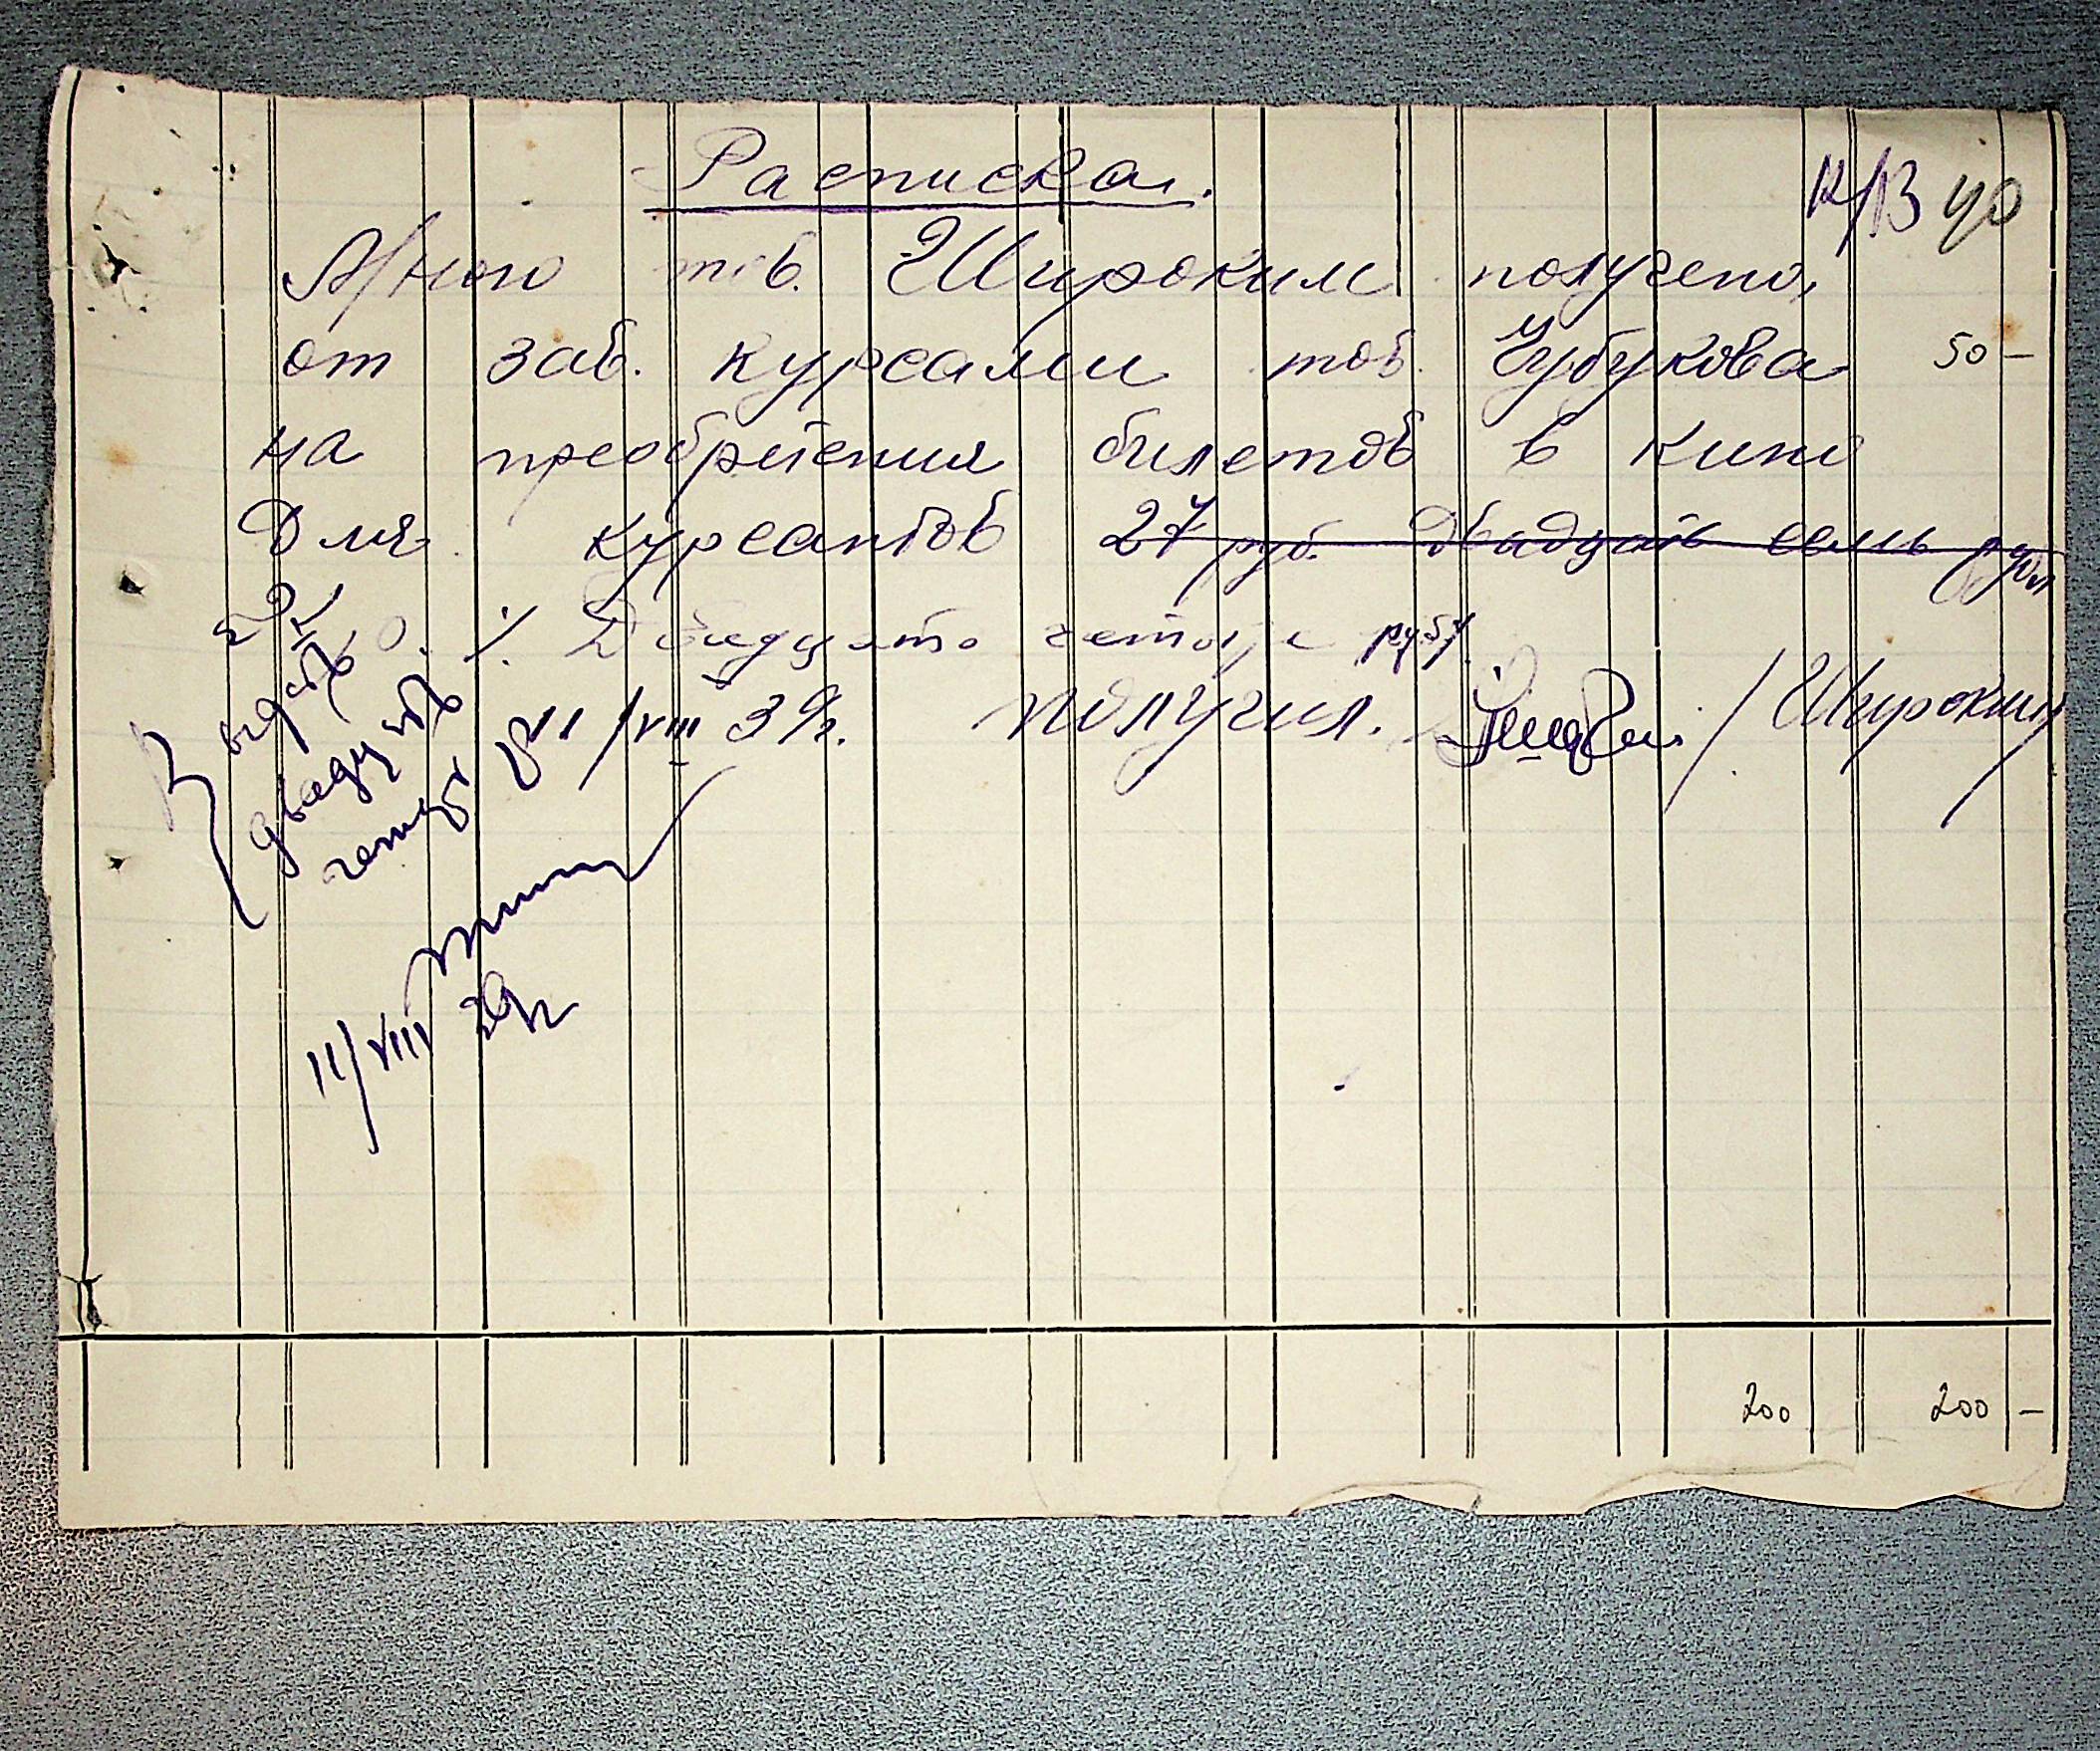 Расписка.
К/В 40
Мною тов. Широким получено,
от зав. курсами тов. Чубукова 50 —
на преобретения билетов в кино
Для курсантов 27 руб. Двадцать семь рубл
Двадцать четыре руб.
11/VIII 39г. получил. / Широкий
Выдать
двадцать
четыре
11/VIII 39г
200 200 —